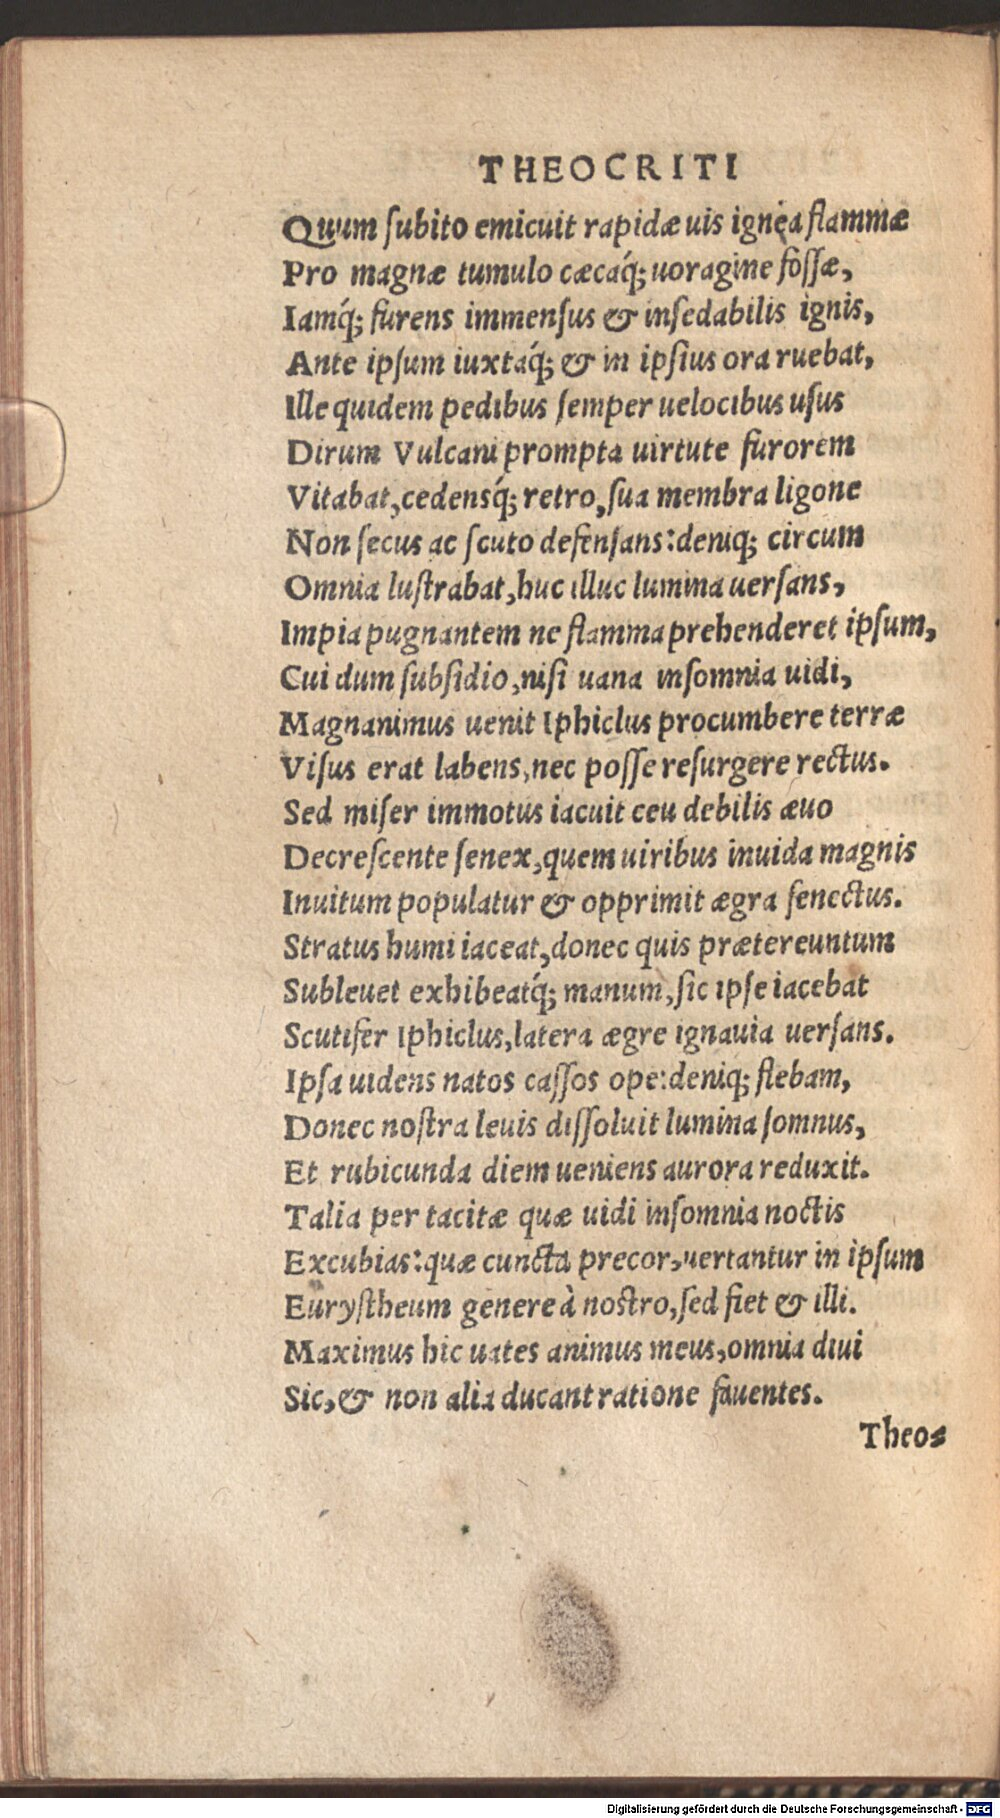 THEOCRITI
Quum ſubito emicuit rapidæ uis ignea flammæ
Pro magnæ tumulo cæcaq́; uoragine foſſæ,
Iamq́; furens immenſus & inſedabilis ignis,
Ante ipſum iuxtaq́; & in ipſius ora ruebat,
Ille quidem pedibus ſemper uelocibus uſus
Dirum Vulcani prompta uirtute furorem
Vitabat, cedensq́; retro, ſua membra ligone
Non ſecus ac ſcuto defenſans: deniq; circum
Omnia luſtrabat, huc illuc lumina uerſans,
Impia pugnantem ne flamma prehenderet ipſum,
Cui dum ſubſidio, niſi uana inſomnia uidi,
Magnanimus uenit Iphiclus procumbere terræ
Viſus erat labens, nec poſſe reſurgere rectus.
Sed miſer immotus iacuit ceu debilis æuo
Decreſcente ſenex, quem uiribus inuida magnis
Inuitum populatur & opprimit ægra ſenectus.
Stratus humi iaceat, donec quis prætereuntum
Subleuet exhibeatq́; manum, ſic ipſe iacebat
Scutifer Iphiclus, latera ægre ignauia uerſans.
Ipſa uidens natos caſſos ope: deniq; flebam,
Donec noſtra leuis diſſoluit lumina ſomnus,
Et rubicunda diem ueniens aurora reduxit.
Talia per tacitæ quæ uidi inſomnia noctis
Excubias: quæ cuncta precor, uertantur in ipſum
Euryſtheum genere à noſtro, ſed fiet & illi.
Maximus hic uates animus meus, omnia diui
Sic, & non alia ducant ratione fauentes.
Theo⸗
Digitalisierung gefördert durch die Deutsche Forschungsgemeinschaft - DFG